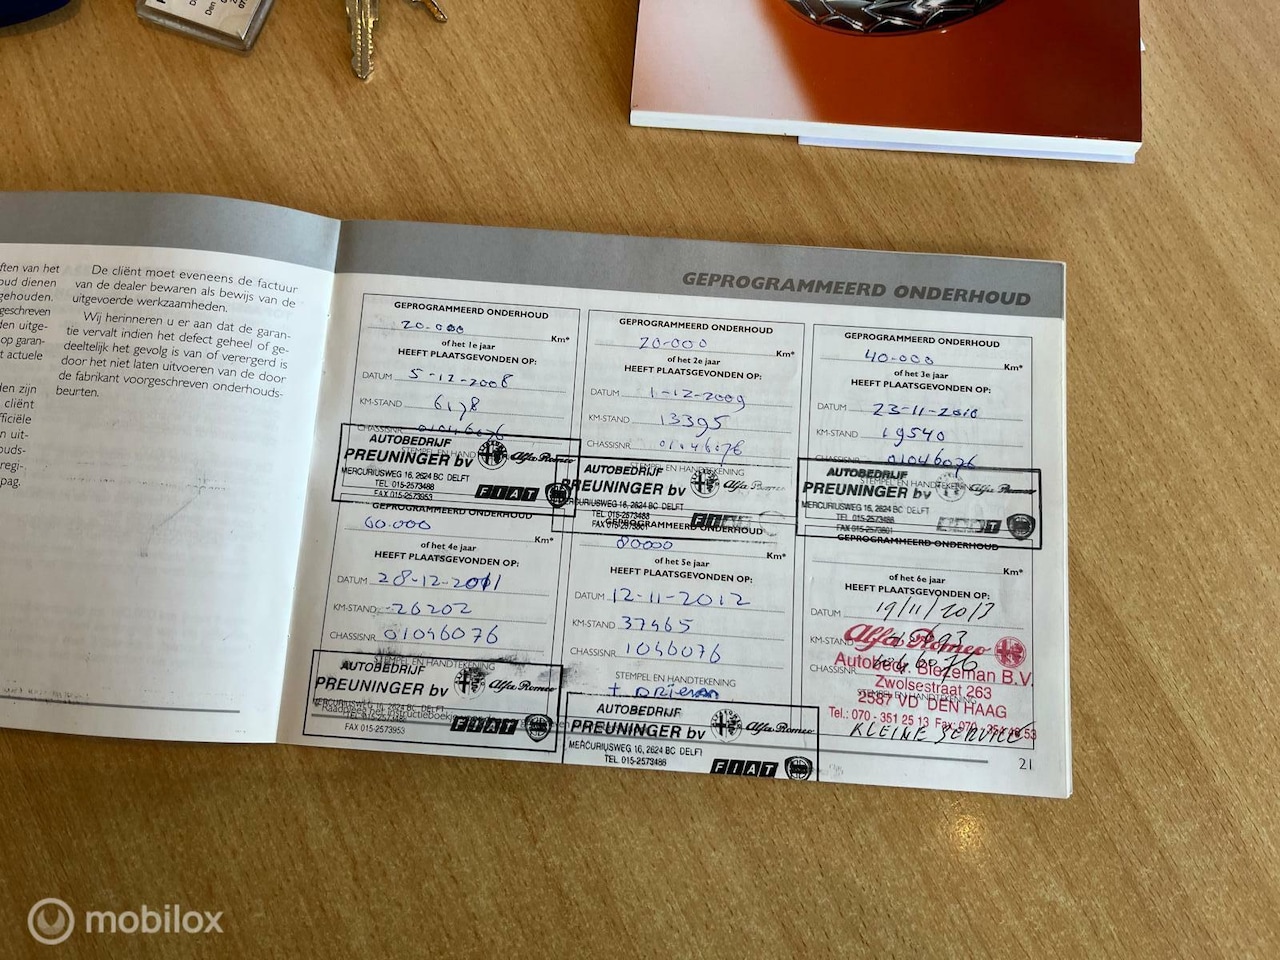 ften van het
oud dienen
gehouden.
geschreven
den uitge-
op garan-
t actuele
den zijn
cliënt
fficiële
en uit-
ouds-
regi-
pag.
De cliënt moet eveneens de factuur
van de dealer bewaren als bewijs van de
uitgevoerde werkzaamheden.
Wij herinneren u er aan dat de garan-
tie vervalt indien het defect geheel of ge-
deeltelijk het gevolg is van of verergerd is
door het niet laten uitvoeren van de door
de fabrikant voorgeschreven onderhouds-
beurten.
GEPROGRAMMEERD ONDERHOUD
GEPROGRAMMEERD ONDERHOUD
20.000 Km*
of het 1e jaar
HEEFT PLAATSGEVONDEN OP:
DATUM 5-12-2008
KM-STAND 6178
CHASSISNR. 01046076
AUTOBEDRIJF
PREUNINGER bv Alfa Romeo
MERCURIUSWEG 16, 2624 BC DELFT
TEL 015-2573488
FAX 015-2573953
FIAT
GEPROGRAMMEERD ONDERHOUD
20.000 Km*
of het 2e jaar
HEEFT PLAATSGEVONDEN OP:
DATUM 1-12-2009
KM-STAND 13395
CHASSISNR. 01046076
STEMPEL EN HANDTEKENING
AUTOBEDRIJF
PREUNINGER bv Alfa Romeo
MERCURIUSWEG 16, 2624 BC DELFT
TEL 015-2573488
FAX 015-2573801
FIAT
GEPROGRAMMEERD ONDERHOUD
40.000 Km*
of het 3e jaar
HEEFT PLAATSGEVONDEN OP:
DATUM 23-11-2010
KM-STAND 19540
CHASSISNR. 01046076
STEMPEL EN HANDTEKENING
AUTOBEDRIJF
PREUNINGER bv Alfa Romeo
MERCURIUSWEG 16, 2624 BC DELFT
TEL 015-2573488
FAX 015-2573801
FIAT
GEPROGRAMMEERD ONDERHOUD
60.000 Km*
of het 4e jaar
HEEFT PLAATSGEVONDEN OP:
DATUM 28-12-2011
KM-STAND 26202
CHASSISNR. 01046076
STEMPEL EN HANDTEKENING
AUTOBEDRIJF
PREUNINGER bv Alfa Romeo
MERCURIUSWEG 16, 2624 BC DELFT
TEL 015-2573488
FAX 015-2573953
FIAT
Raadpleeg het instructieboekje
GEPROGRAMMEERD ONDERHOUD
80000 Km*
of het 5e jaar
HEEFT PLAATSGEVONDEN OP:
DATUM 12-11-2012
KM-STAND 37465
CHASSISNR. 1046076
STEMPEL EN HANDTEKENING
AUTOBEDRIJF
PREUNINGER bv Alfa Romeo
MERCURIUSWEG 16, 2624 BC DELFT
TEL 015-2573488
FIAT
GEPROGRAMMEERD ONDERHOUD
Km*
of het 6e jaar
HEEFT PLAATSGEVONDEN OP:
DATUM 19/11/2013
KM-STAND
Alfa Romeo
CHASSISNR.
Autobedr. Biezeman B.V.
Zwolsestraat 263
STEMPEL EN HANDTEKENING
2587 VD DEN HAAG
Tel.: 070 - 351 25 13 Fax: 070 -
KLEINE SERVICE
21
mobilox